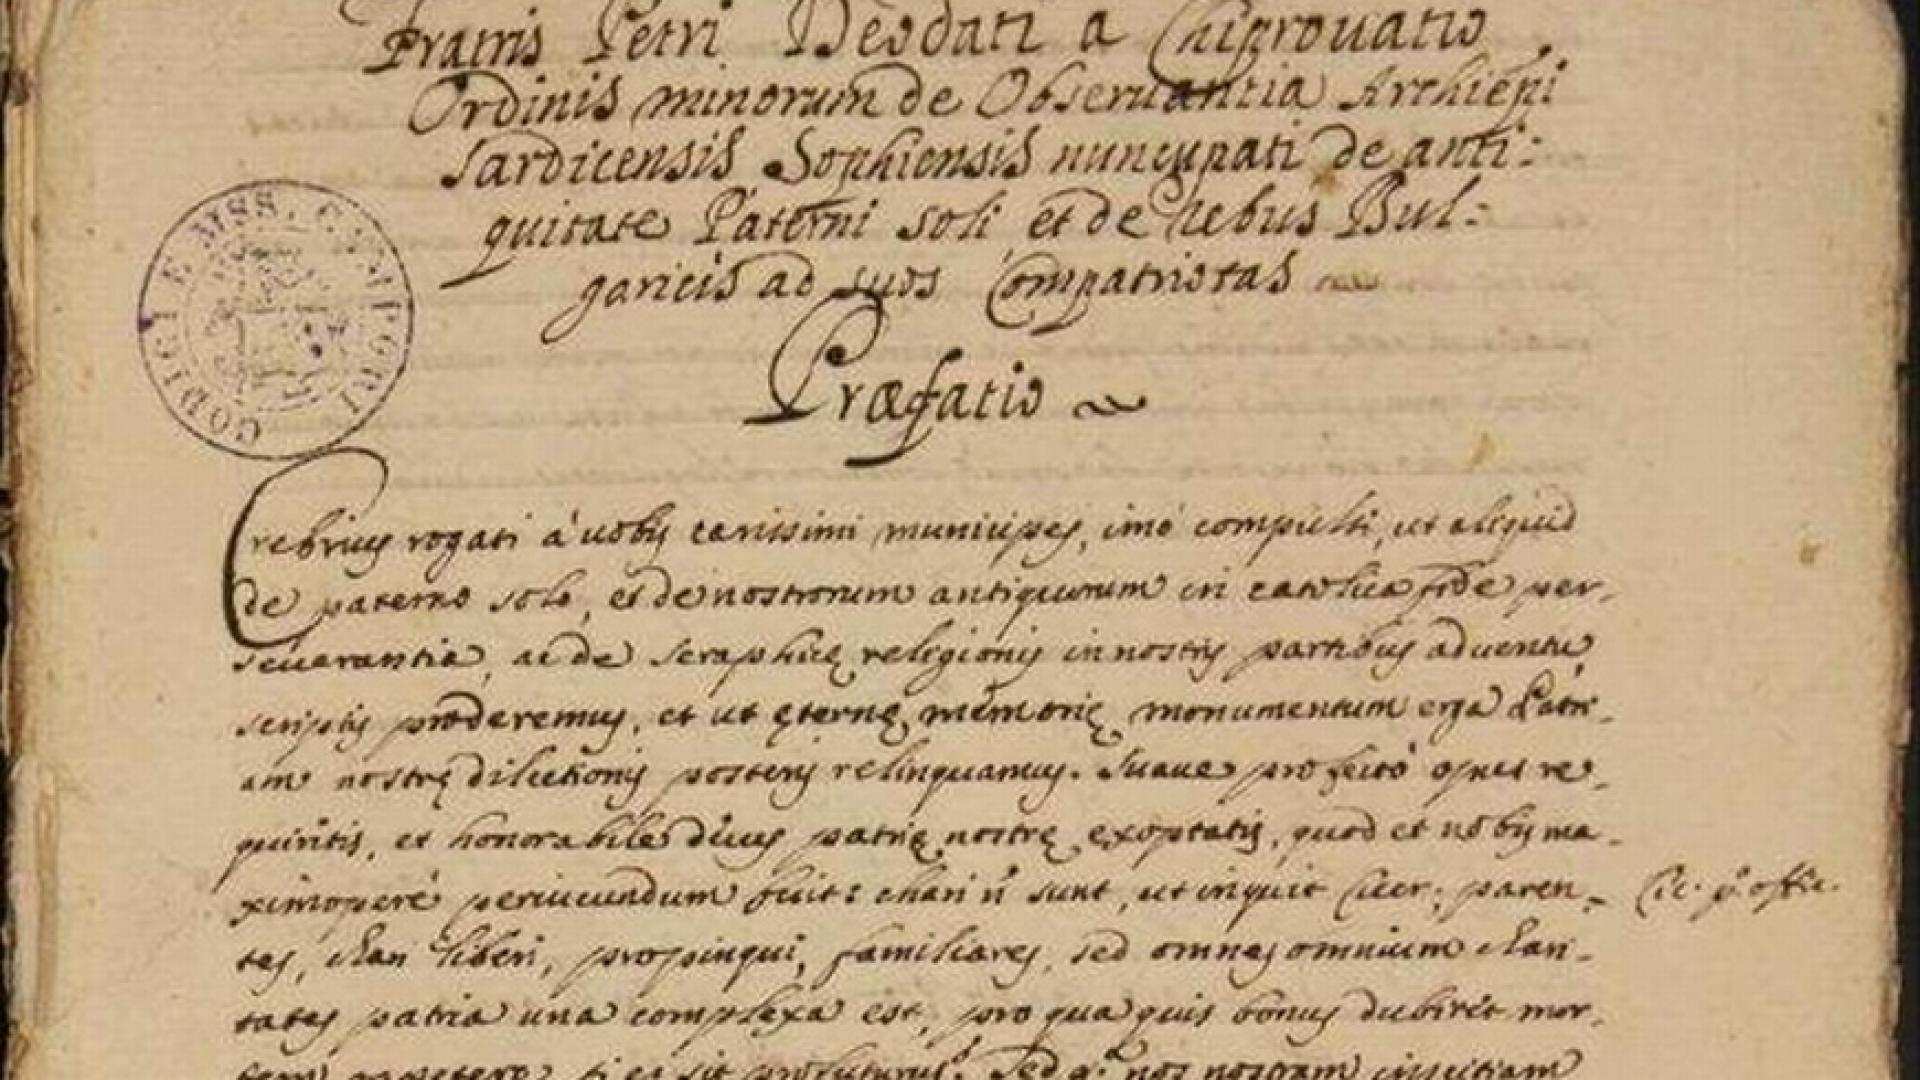 Fratris Petri Deodati a Chiprouatio
Ordinis minorum de Obseruantia Archiepi
Sardicensis Sophiensis nuncupati de anti:
quitate Paterni soli et de rebus Bul:
garicis ad suos Compatriotas
Præfatio
CODICI E MSS. CAMPORI
Crebrius rogati à uobis carissimi municipes, imò compulsi, ut aliquid
de paterno solo, et de nostrorum antiquorum in catolica fide per-
seuerantia, ac de seraphicę religionis in nostris partibus aduentu,
scriptis proderemus, et ut ęternę memorię monumentum erga Patri-
am nostrę dilectionis posteris relinquamus. Suaue profectò opus re-
quiritis, et honorabile decus patrię nostrę exoptatis, quod et nobis ma-
ximoperè periucundum fuit: chari n sunt, ut inquit Cicer: paren-
Cic. pº offic.
tes, chari liberi, propinqui, familiares, sed omnes omnium chari-
tates patria una complexa est, pro qua quis bonus dubitet mor-
tem appetere, si ei sit profuturus? Sed qª nos nostram inscitiam